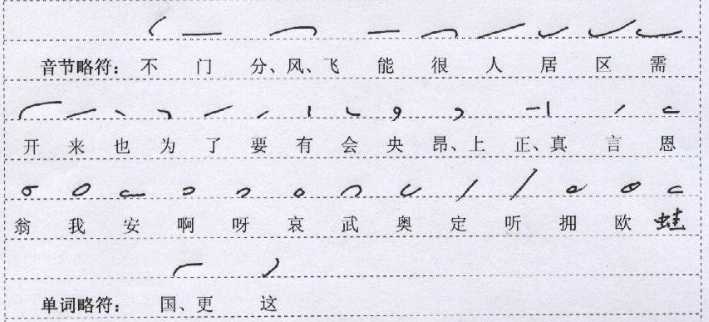 音节略符：不 门 分、风、飞 能 很 人 居 区 需
开 来 也 为 了 要 有 会 央 昂、上 正、真 言 恩
翁 我 安 啊 呀 哀 武 奥 定 听 拥 欧 蛙
单词略符：国、更 这